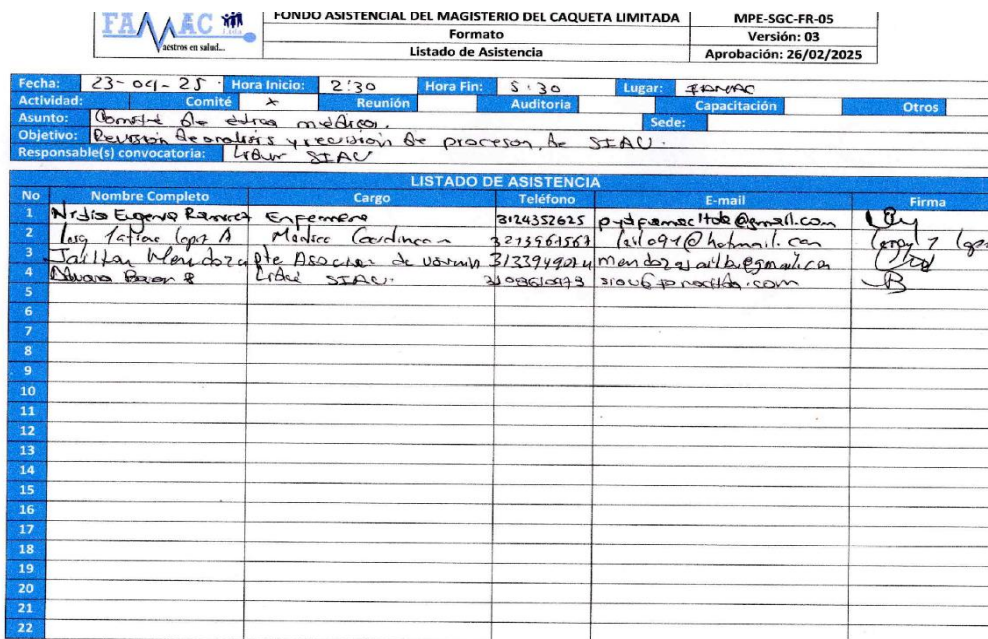 FAMAC LTDA
Maestros en salud...
FONDO ASISTENCIAL DEL MAGISTERIO DEL CAQUETA LIMITADA
Formato
Listado de Asistencia
MPE-SGC-FR-05
Versión: 03
Aprobación: 26/02/2025
Fecha: 23-04-25 Hora Inicio: 2:30 Hora Fin: 5:30 Lugar: FAMAC
Actividad: Comité x Reunión Auditoria Capacitación Otros
Asunto: Comité de etica médica. Sede:
Objetivo: Revisión de analisis y revision de procesos, de SIAU.
Responsable(s) convocatoria: Lider SIAU
LISTADO DE ASISTENCIA
No Nombre Completo Cargo Teléfono E-mail Firma
1 Nidia Eugenia Ramirez Enfermera 3124352625
2 Tatiana Lopez A Médico Coordinadora @hotmail.com
3 Mendoza Pte Asociacion de usuarios
4 Lider SIAU.
5
6
7
8
9
10
11
12
13
14
15
16
17
18
19
20
21
22